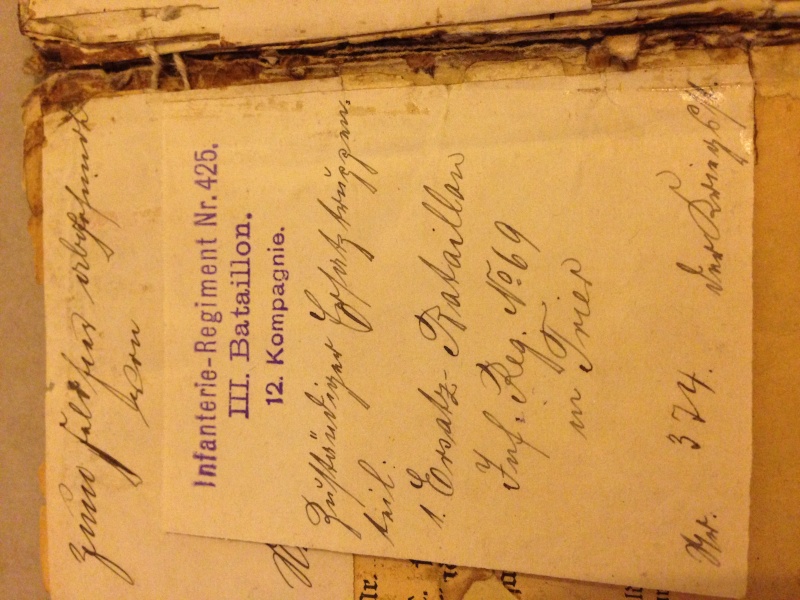 Zum Feldheer abgesandt
von
Infanterie-Regiment Nr. 425.
III. Bataillon.
12. Kompagnie.
Zuständiger Ersatztruppen-
teil:
1. Ersatz-Bataillon
Inf. Reg. No 69
in Trier
Nr. 374. der Kriegs
Nr.